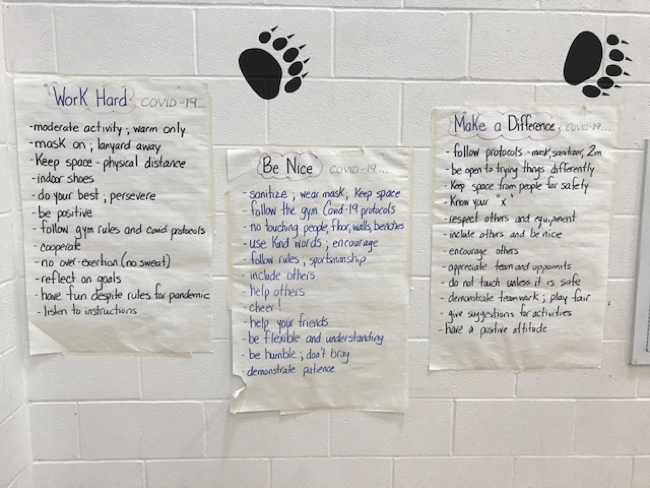 Work Hard COVID-19...
- moderate activity; warm only
- mask on; lanyard away
- Keep space - physical distance
- indoor shoes
- do your best; persevere
- be positive
- follow gym rules and covid protocols
- cooperate
- no over-exertion (no sweat)
- reflect on goals
- have fun despite rules for pandemic
- listen to instructions
Be Nice COVID-19...
- sanitize; wear mask; Keep space
- follow the gym Covid-19 protocols
- no touching people, floor, walls, benches
- use Kind words; encourage
- follow rules; sportsmanship
- include others
- help others
- cheer!
- help your friends
- be flexible and understanding
- be humble; don't brag
- demonstrate patience
Make a Difference COVID-19...
- follow protocols - mask, sanitizer, 2m
- be open to trying things differently
- Keep space from people for safety
- Know your "x"
- respect others and equipment
- include others and be nice
- encourage others
- appreciate team and opponents
- do not touch unless it is safe
- demonstrate teamwork; play fair
- give suggestions for activities
- have a positive attitude